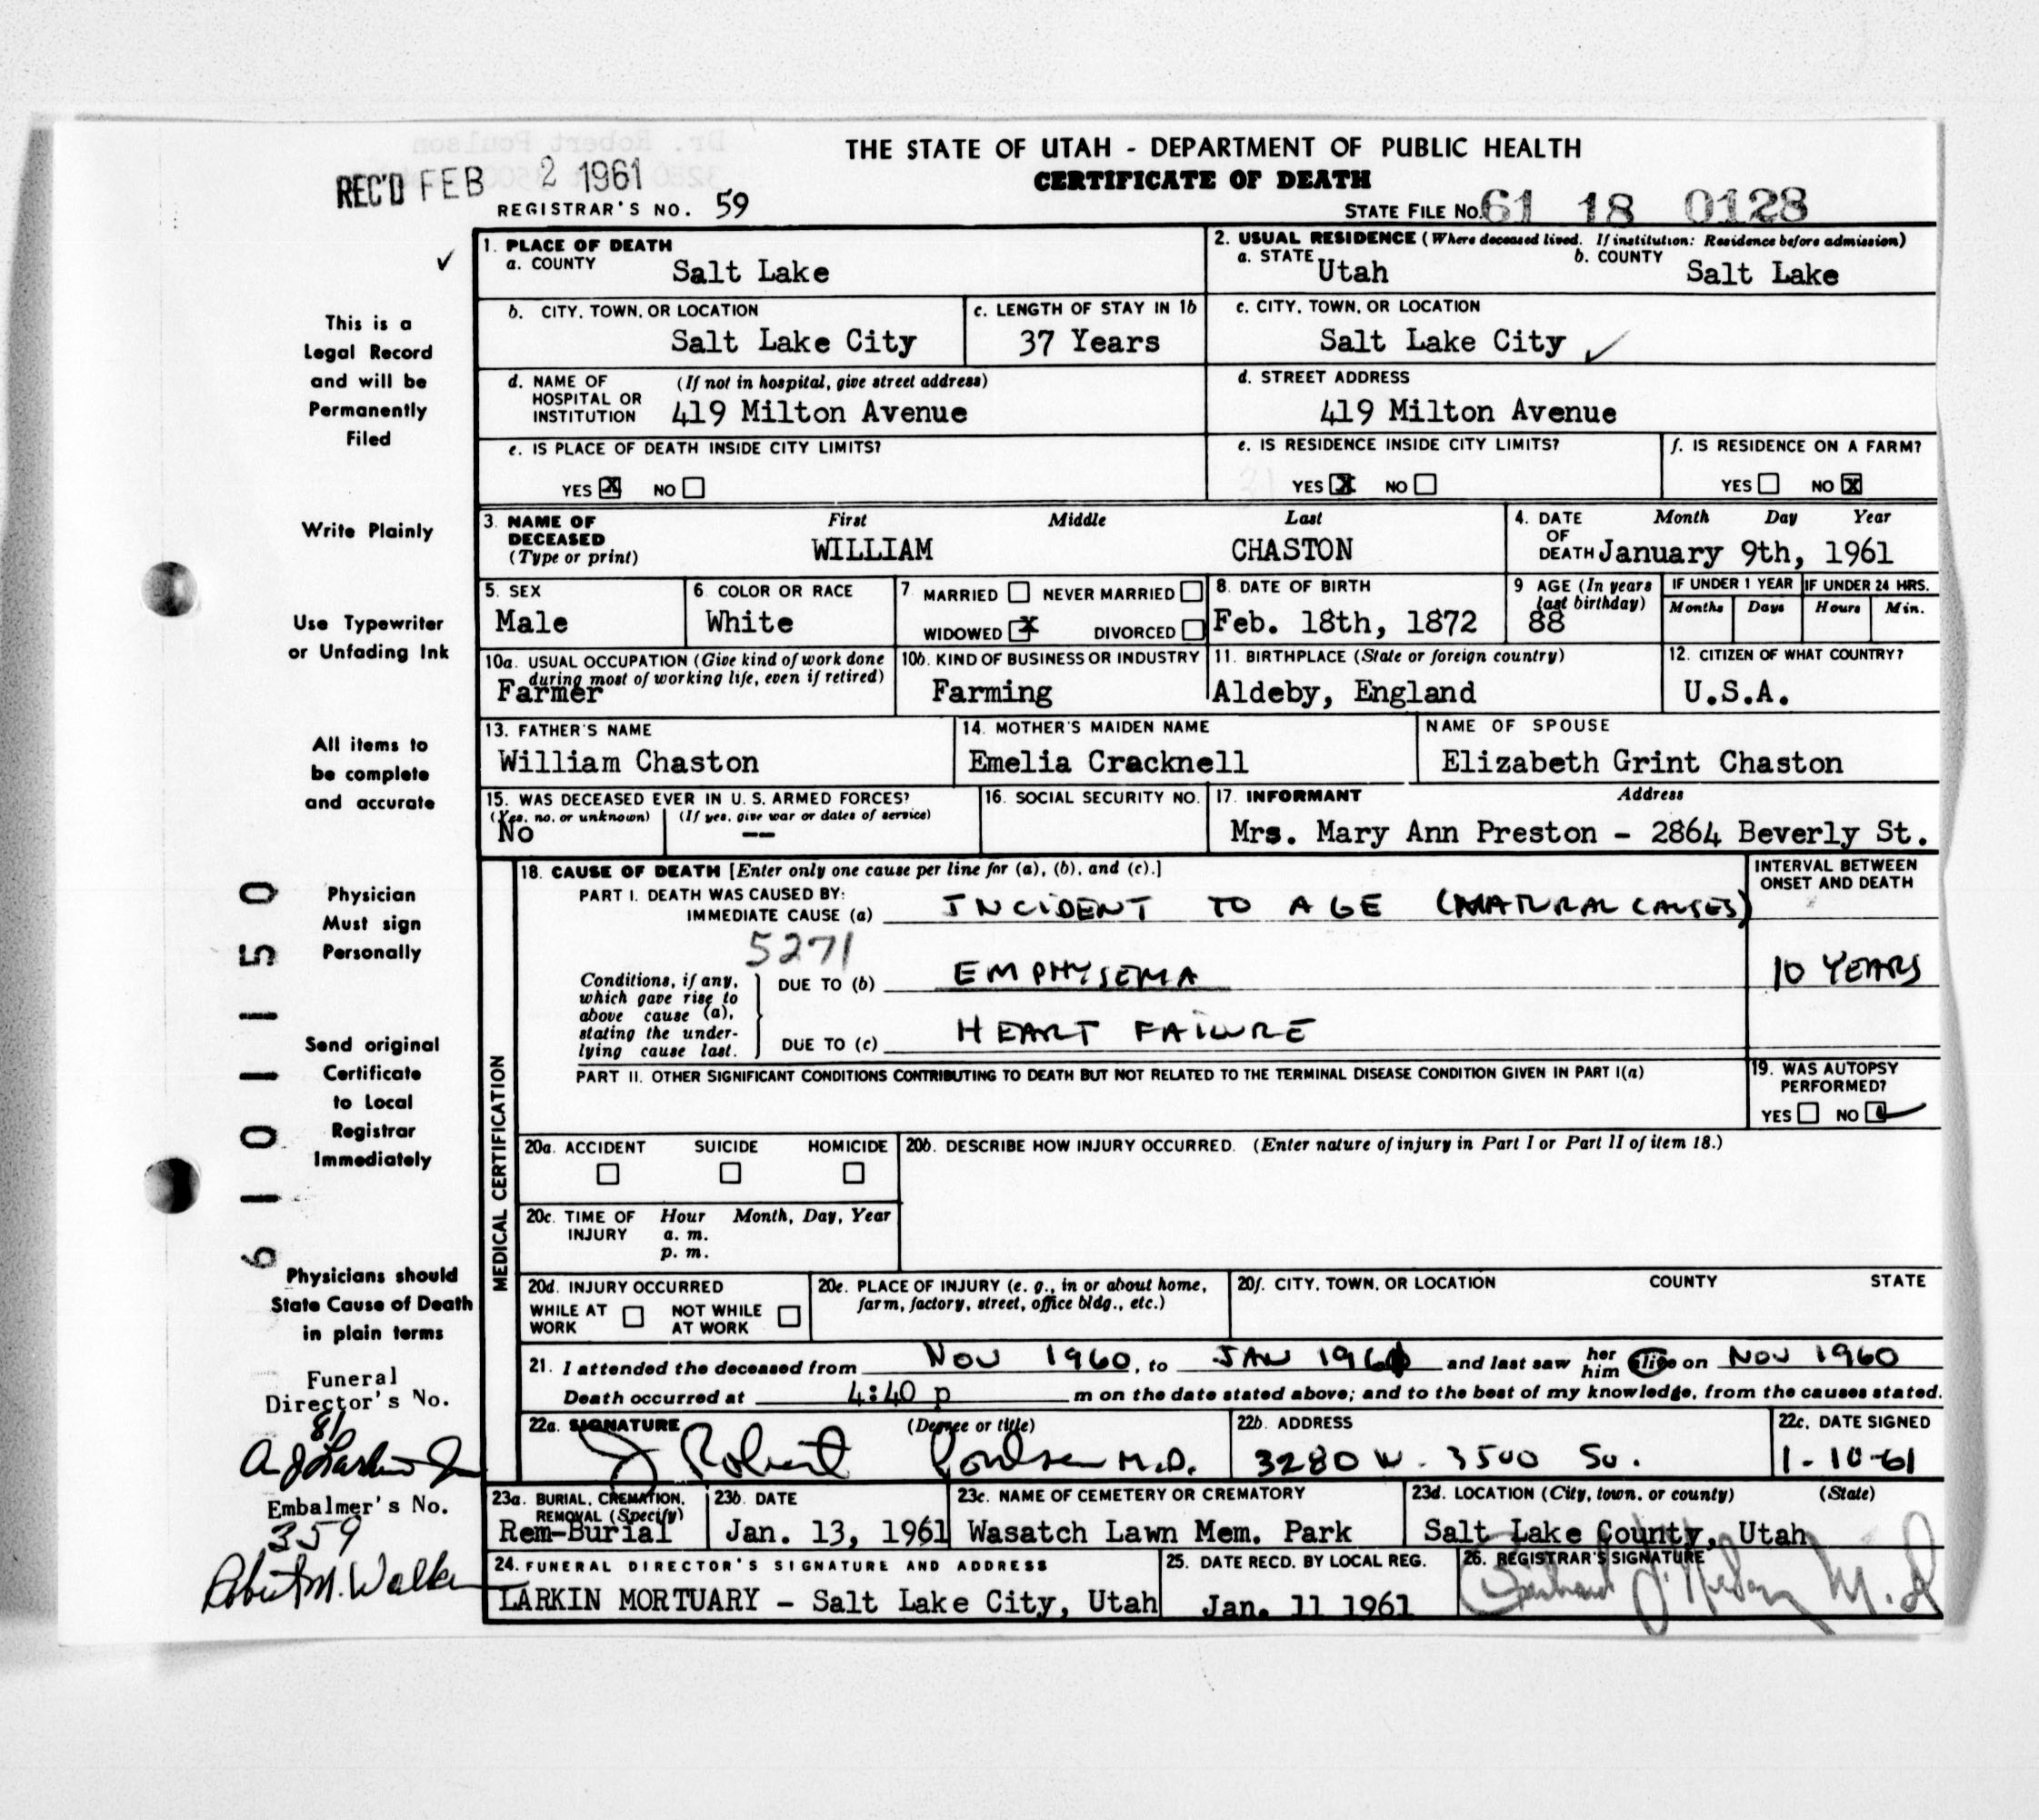 THE STATE OF UTAH - DEPARTMENT OF PUBLIC HEALTH
CERTIFICATE OF DEATH
REC'D FEB 2 1961
REGISTRAR'S NO. 59
STATE FILE No. 61 18 0128
1. PLACE OF DEATH
a. COUNTY Salt Lake
2. USUAL RESIDENCE (Where deceased lived. If institution: Residence before admission)
a. STATE Utah b. COUNTY Salt Lake
b. CITY, TOWN, OR LOCATION Salt Lake City
c. LENGTH OF STAY IN 1b 37 Years
c. CITY, TOWN, OR LOCATION Salt Lake City ✓
d. NAME OF HOSPITAL OR INSTITUTION (If not in hospital, give street address) 419 Milton Avenue
d. STREET ADDRESS 419 Milton Avenue
e. IS PLACE OF DEATH INSIDE CITY LIMITS?
YES ☒ NO ☐
e. IS RESIDENCE INSIDE CITY LIMITS?
YES ☒ NO ☐
f. IS RESIDENCE ON A FARM?
YES ☐ NO ☒
3. NAME OF DECEASED (Type or print)
First Middle Last
WILLIAM CHASTON
4. DATE OF DEATH Month Day Year
January 9th, 1961
5. SEX Male
6. COLOR OR RACE White
7. MARRIED ☐ NEVER MARRIED ☐
WIDOWED ☒ DIVORCED ☐
8. DATE OF BIRTH Feb. 18th, 1872
9 AGE (In years last birthday) 88
IF UNDER 1 YEAR Months Days
IF UNDER 24 HRS. Hours Min.
10a. USUAL OCCUPATION (Give kind of work done during most of working life, even if retired) Farmer
10b. KIND OF BUSINESS OR INDUSTRY Farming
11. BIRTHPLACE (State or foreign country) Aldeby, England
12. CITIZEN OF WHAT COUNTRY? U.S.A.
13. FATHER'S NAME William Chaston
14. MOTHER'S MAIDEN NAME Emelia Cracknell
NAME OF SPOUSE Elizabeth Grint Chaston
15. WAS DECEASED EVER IN U. S. ARMED FORCES?
(Yes, no, or unknown) No
(If yes, give war or dates of service) --
16. SOCIAL SECURITY NO.
17. INFORMANT Address
Mrs. Mary Ann Preston - 2864 Beverly St.
MEDICAL CERTIFICATION
18. CAUSE OF DEATH [Enter only one cause per line for (a), (b), and (c).]
INTERVAL BETWEEN ONSET AND DEATH
PART I. DEATH WAS CAUSED BY:
IMMEDIATE CAUSE (a) INCIDENT TO AGE (NATURAL CAUSES)
5271
Conditions, if any, which gave rise to above cause (a), stating the underlying cause last.
DUE TO (b) EMPHYSEMA 10 YEARS
DUE TO (c) HEART FAILURE
PART II. OTHER SIGNIFICANT CONDITIONS CONTRIBUTING TO DEATH BUT NOT RELATED TO THE TERMINAL DISEASE CONDITION GIVEN IN PART I(a)
19. WAS AUTOPSY PERFORMED?
YES ☐ NO ☑
20a. ACCIDENT ☐ SUICIDE ☐ HOMICIDE ☐
20b. DESCRIBE HOW INJURY OCCURRED. (Enter nature of injury in Part I or Part II of item 18.)
20c. TIME OF INJURY Hour Month, Day, Year
a. m.
p. m.
20d. INJURY OCCURRED
WHILE AT WORK ☐ NOT WHILE AT WORK ☐
20e. PLACE OF INJURY (e. g., in or about home, farm, factory, street, office bldg., etc.)
20f. CITY, TOWN, OR LOCATION COUNTY STATE
21. I attended the deceased from Nov 1960, to JAN 1961 and last saw her him alive on Nov 1960
Death occurred at 4:40 p m on the date stated above; and to the best of my knowledge, from the causes stated.
22a. SIGNATURE (Degree or title)
J Robert Poulson M.D.
22b. ADDRESS 3280 W. 3500 So.
22c. DATE SIGNED 1-10-61
23a. BURIAL, CREMATION, REMOVAL (Specify) Rem-Burial
23b. DATE Jan. 13, 1961
23c. NAME OF CEMETERY OR CREMATORY Wasatch Lawn Mem. Park
23d. LOCATION (City, town, or county) (State)
Salt Lake County, Utah
24. FUNERAL DIRECTOR'S SIGNATURE AND ADDRESS
LARKIN MORTUARY - Salt Lake City, Utah
25. DATE RECD. BY LOCAL REG. Jan. 11 1961
26. REGISTRAR'S SIGNATURE
M.D
✓
This is a
Legal Record
and will be
Permanently
Filed
Write Plainly
Use Typewriter
or Unfading Ink
All items to
be complete
and accurate
Physician
Must sign
Personally
Send original
Certificate
to Local
Registrar
Immediately
Physicians should
State Cause of Death
in plain terms
Funeral
Director's No.
81
A J Larkin Jr
Embalmer's No.
359
Robert M. Walker
6 1 0 1 1 5 0